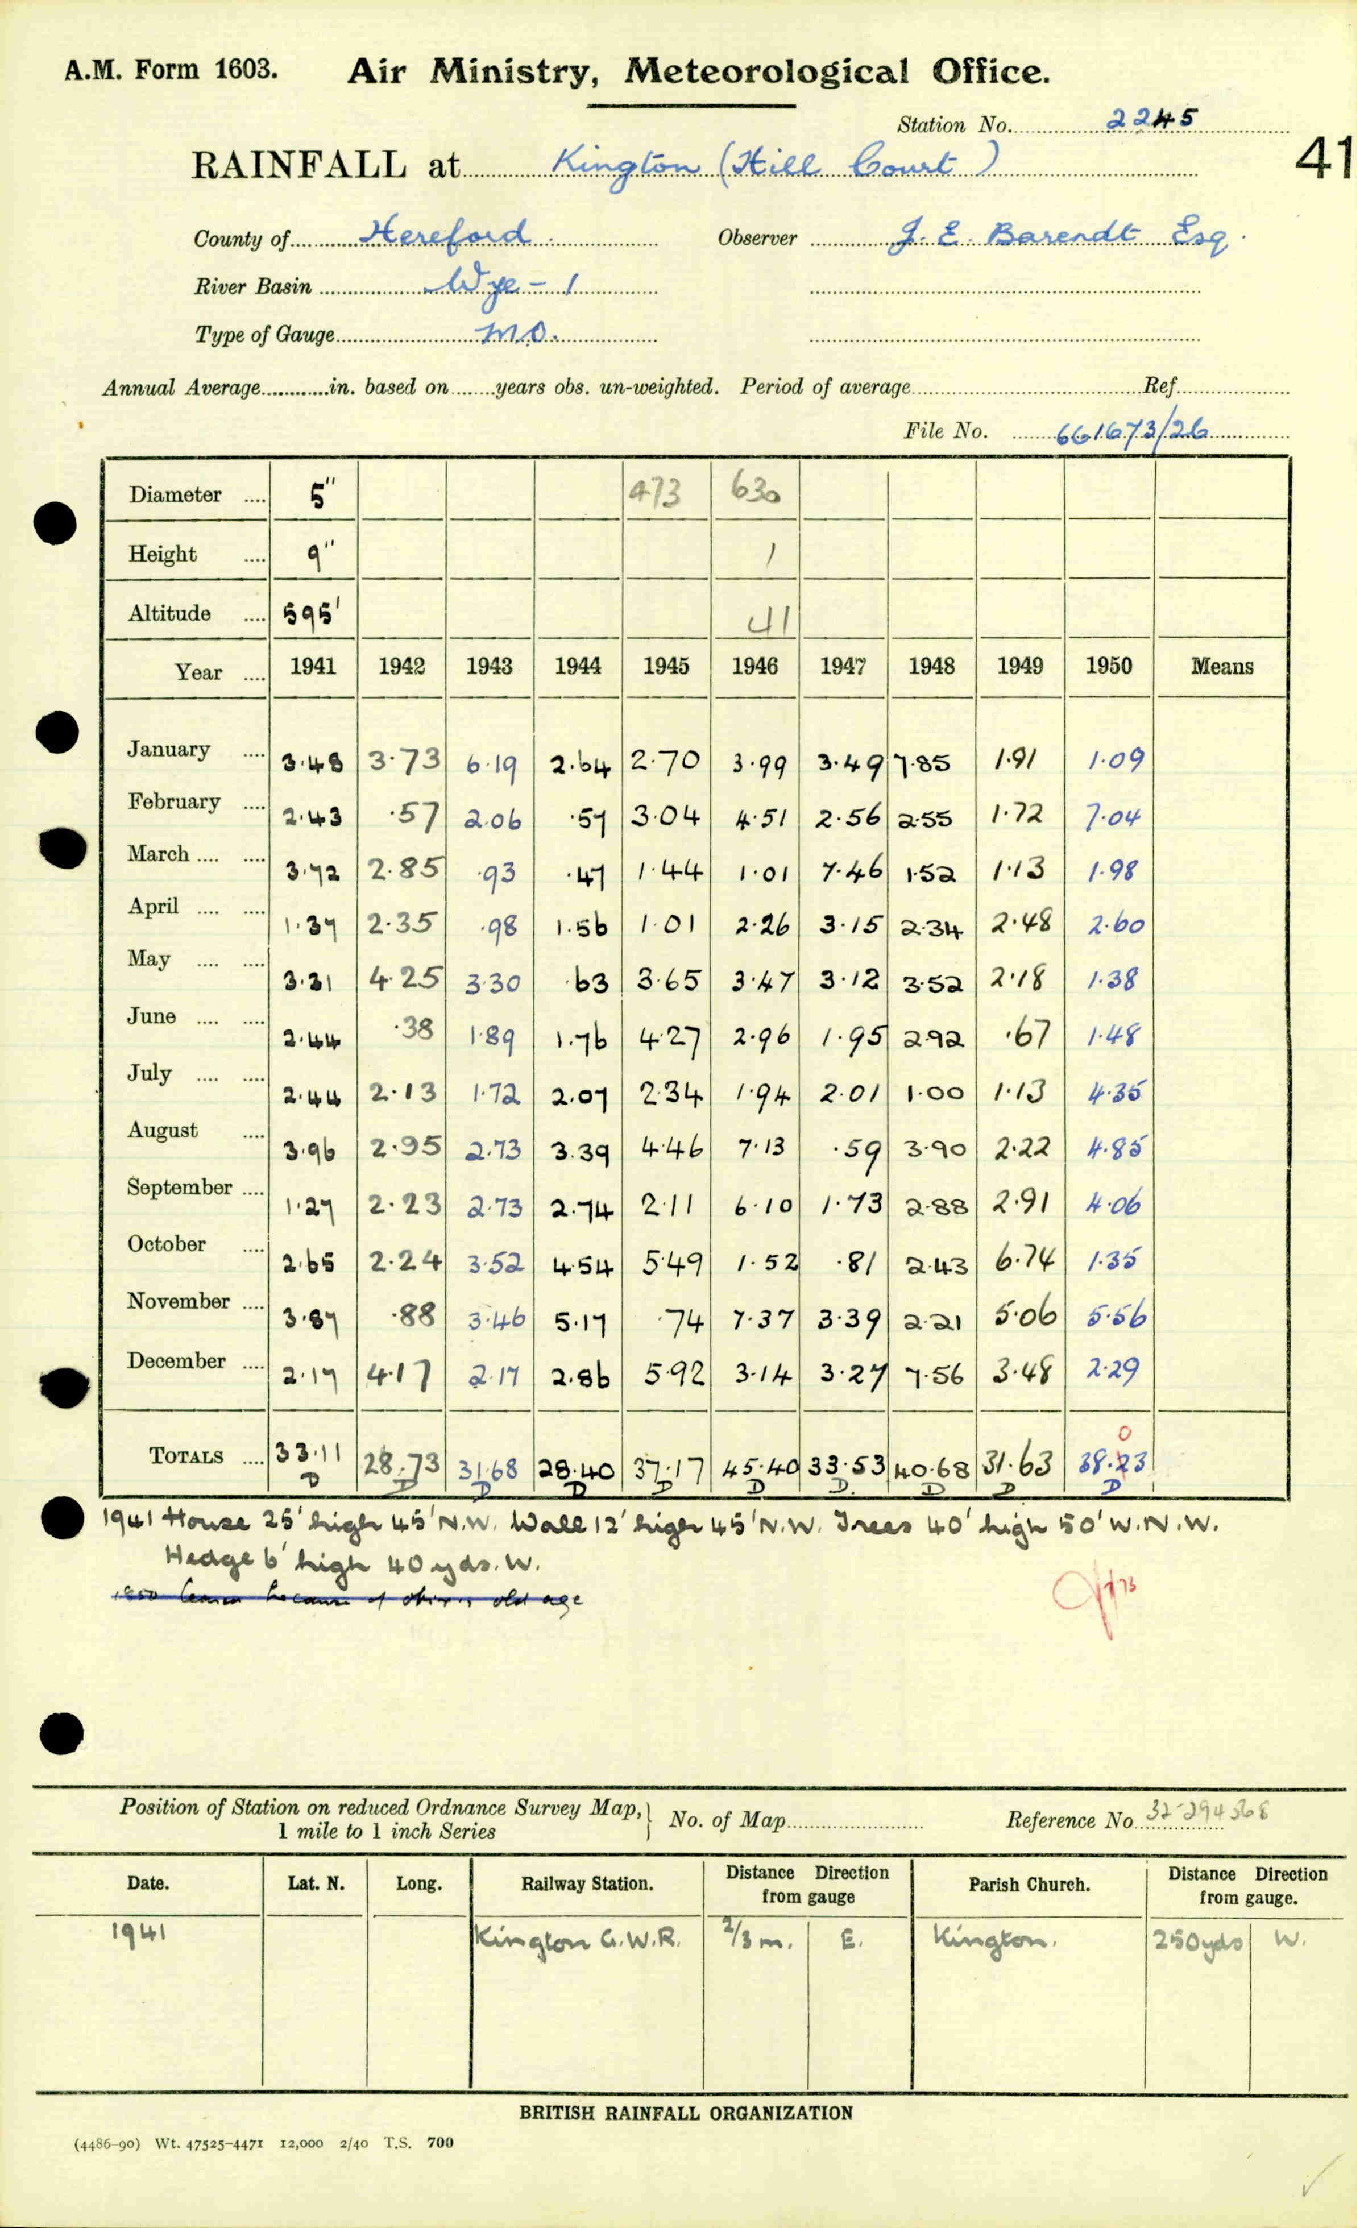 A.M. Form 1603. Air Ministry, Meteorological Office.
Station No. 2245
41
RAINFALL at Kington (Hill Court)
County of Hereford Observer J. E. Barendt Esq.
River Basin Wye - 1
Type of Gauge M.O.
Annual Average in. based on years obs. un-weighted. Period of average Ref.
File No. 661673/26
Diameter 5" 473 630
Height 9" 1
Altitude 595' 41
Year 1941 1942 1943 1944 1945 1946 1947 1948 1949 1950 Means
January 3.48 3.73 6.19 2.64 2.70 3.99 3.49 7.85 1.91 1.09
February 2.43 .57 2.06 .57 3.04 4.51 2.56 2.55 1.72 7.04
March 3.72 2.85 .93 .47 1.44 1.01 7.46 1.52 1.13 1.98
April 1.37 2.35 .98 1.56 1.01 2.26 3.15 2.34 2.48 2.60
May 3.31 4.25 3.30 .63 3.65 3.47 3.12 3.52 2.18 1.38
June 2.44 .38 1.89 1.76 4.27 2.96 1.95 2.92 .67 1.48
July 2.44 2.13 1.72 2.07 2.34 1.94 2.01 1.00 1.13 4.35
August 3.96 2.95 2.73 3.39 4.46 7.13 .59 3.90 2.22 4.85
September 1.27 2.23 2.73 2.74 2.11 6.10 1.73 2.88 2.91 4.06
October 2.65 2.24 3.52 4.54 5.49 1.52 .81 2.43 6.74 1.35
November 3.87 .88 3.46 5.17 .74 7.37 3.39 2.21 5.06 5.56
December 2.17 4.17 2.17 2.86 5.92 3.14 3.27 7.56 3.48 2.29
0
TOTALS 33.11 28.73 31.68 28.40 37.17 45.40 33.53 40.68 31.63 38.23
D D D D D D D. D D D
1941 House 25' high 45' N.W. Wall 12' high 45' N.W. Trees 40' high 50' W.N.W.
Hedge 6' high 40 yds. W.
because of old age
Position of Station on reduced Ordnance Survey Map, No. of Map Reference No. 32-294568
1 mile to 1 inch Series
Date. Lat. N. Long. Railway Station. Distance Direction from gauge Parish Church. Distance Direction from gauge.
1941 Kington G.W.R. 2/3 m. E. Kington. 250 yds W.
BRITISH RAINFALL ORGANIZATION
(4486-90) Wt. 47525-4471 12,000 2/40 T.S. 700